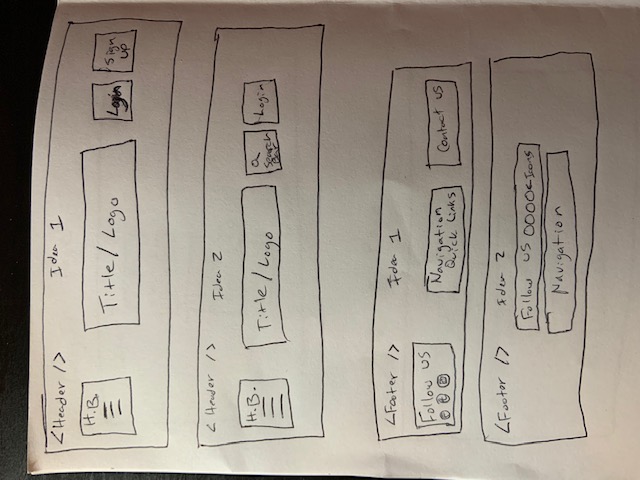 <Header /> Idea 1
H.B.
Title/Logo
Login
Sign
UP
<Header /> Idea 2
H.B.
Title/Logo
Search
Bar
Login
<Footer /> Idea 1
Follow US
Navigation
Quick Links
Contact US
<Footer /> Idea 2
Follow US OOOO<Icons
Navigation